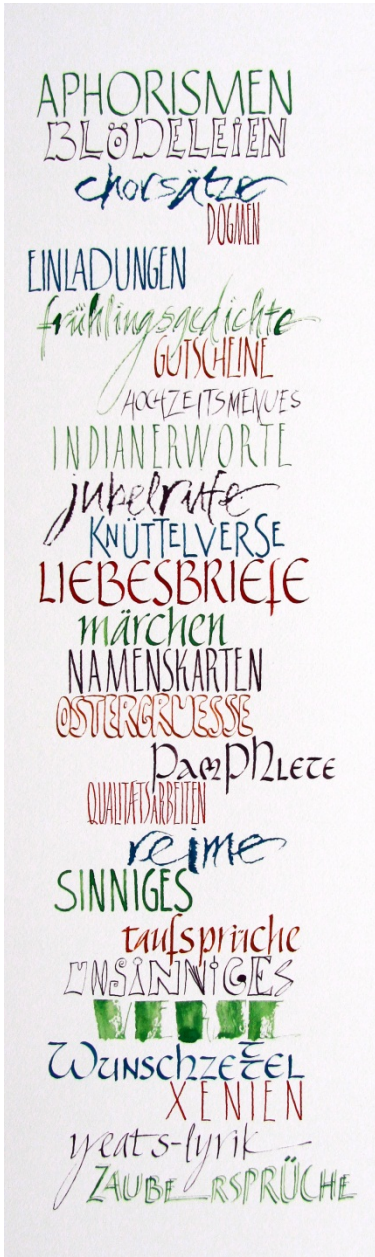 APHORISMEN
BLÖDELEIEN
chorsätze
DOGMEN
EINLADUNGEN
frühlingsgedichte
GUTSCHEINE
HOCHZEITSMENUES
INDIANERWORTE
jubelrufe
KNÜTTELVERSE
LIEBESBRIEfE
märchen
NAMENSKARTEN
OSTERGRUESSE
PAMPHLETE
QUALITÆTSARBEITEN
reime
SINNIGES
taufsprüche
UNSINNiGES
VERSE
WUNSCHZETTEL
XENIEN
yeats-lyrik
ZAUBE_RSPRÜCHE